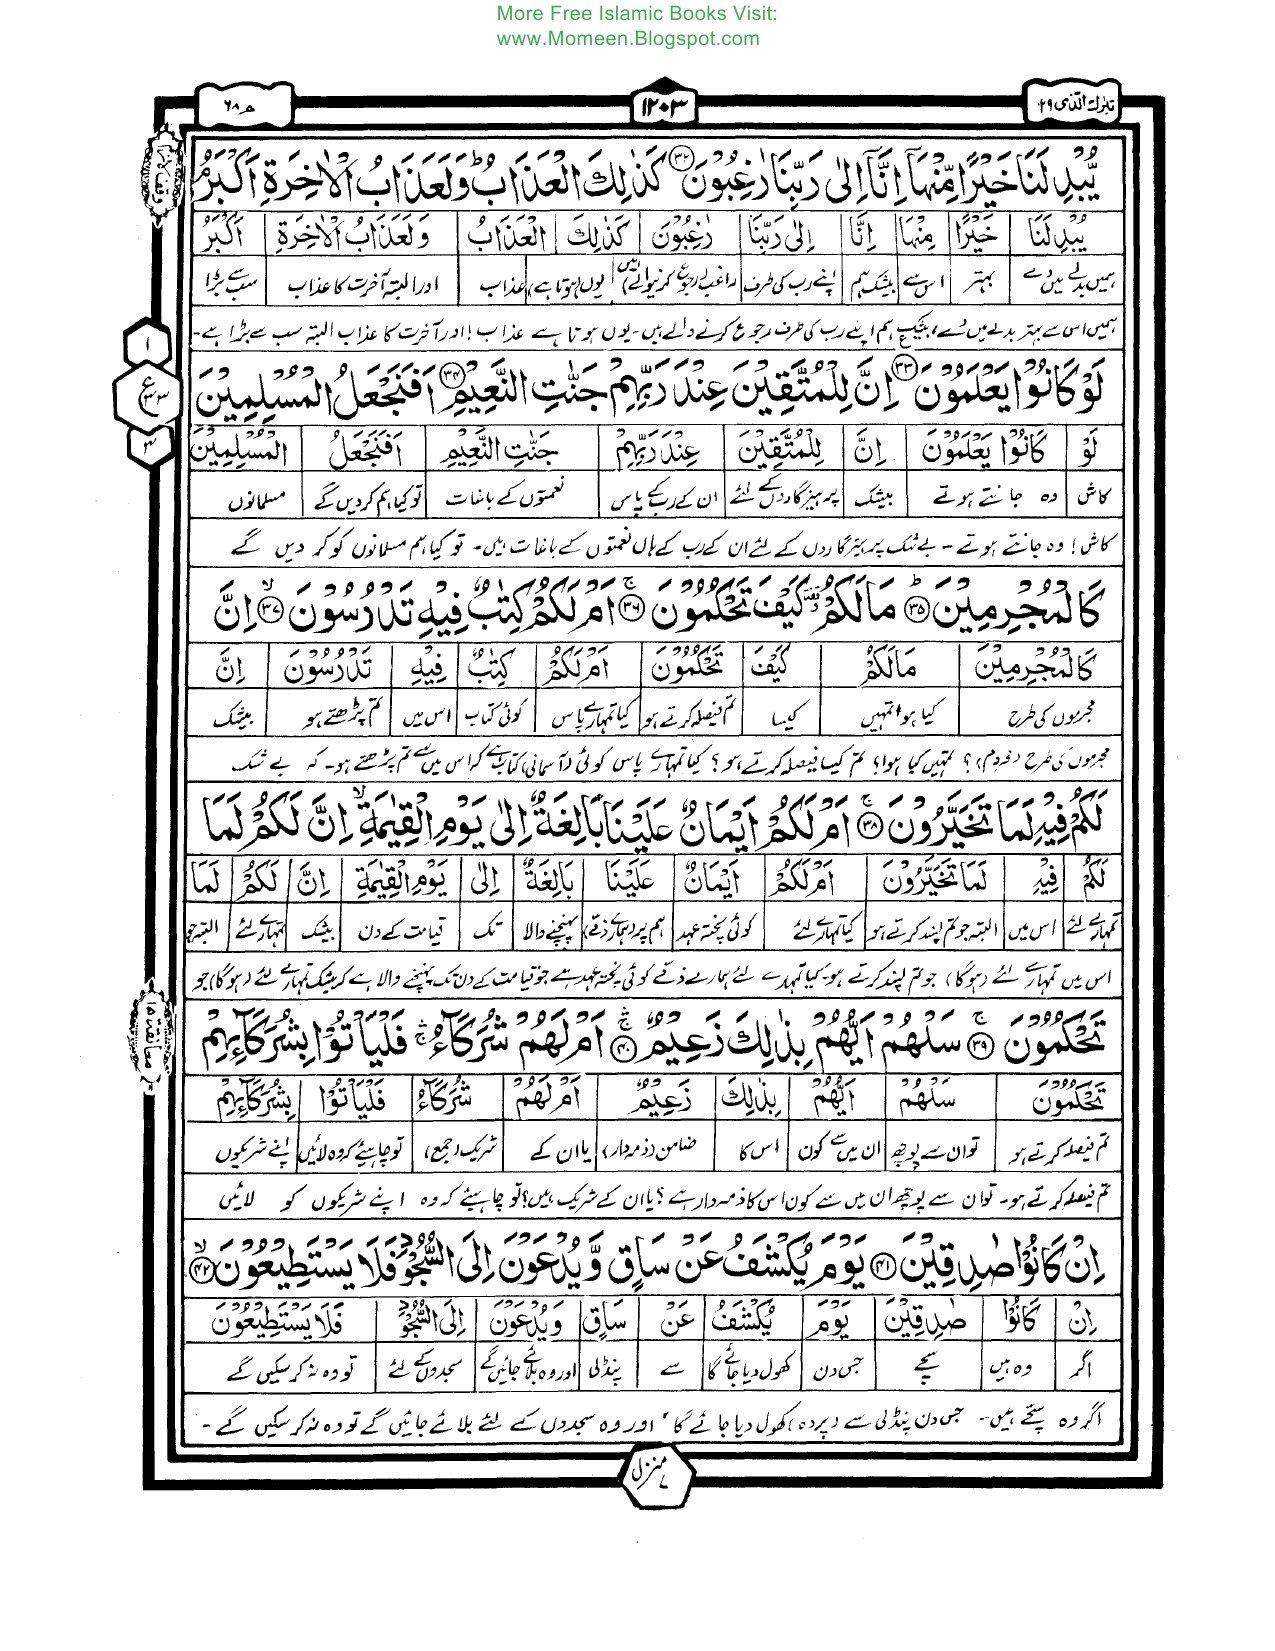 More Free Islamic Books Visit:
www.Momeen.Blogspot.com
تبٰرك الّذی ۲۹
۱۲۰۳
ن ۶۸
يُّبْدِلَنَا خَيْرًا مِّنْهَآ اِنَّآ اِلٰى رَبِّنَا رٰغِبُوْنَ ﴿۳۲﴾ كَذٰلِكَ الْعَذَابُ ؕ وَلَعَذَابُ الْاٰخِرَةِ اَكْبَرُ ۘ
يُبْدِلَنَا خَيْرًا مِنْهَا اِنَّا اِلٰى رَبِّنَا رٰغِبُوْنَ كَذٰلِكَ الْعَذَابُ وَلَعَذَابُ الْاٰخِرَةِ اَكْبَرُ
ہمیں بدلے میں دے بہتر اس سے بیشک ہم اپنے رب کی طرف راغب (رجوع کرنیوالے) ہیں یوں ہوتا ہے عذاب اور البتہ آخرت کا عذاب سب سے بڑا
ہمیں اس سے بہتر بدلے میں دے، بیشک ہم اپنے رب کی طرف رجوع کرنے والے ہیں۔ یوں ہوتا ہے عذاب! اور آخرت کا عذاب البتہ سب سے بڑا ہے۔
لَوْ كَانُوْا يَعْلَمُوْنَ ﴿۳۳﴾ اِنَّ لِلْمُتَّقِيْنَ عِنْدَ رَبِّهِمْ جَنّٰتِ النَّعِيْمِ ﴿۳۴﴾ اَفَنَجْعَلُ الْمُسْلِمِيْنَ
۱
ع
۳۳
۳
لَوْ كَانُوْا يَعْلَمُوْنَ اِنَّ لِلْمُتَّقِيْنَ عِنْدَ رَبِّهِمْ جَنّٰتِ النَّعِيْمِ اَفَنَجْعَلُ الْمُسْلِمِيْنَ
کاش وہ جانتے ہوتے بیشک پرہیزگاروں کے لئے ان کے رب کے پاس نعمتوں کے باغات تو کیا ہم کر دیں گے مسلمانوں
کاش! وہ جانتے ہوتے۔ بے شک پرہیزگاروں کے لئے ان کے رب کے ہاں نعمتوں کے باغات ہیں۔ تو کیا ہم مسلمانوں کو کر دیں گے
كَالْمُجْرِمِيْنَ ؕ﴿۳۵﴾ مَا لَكُمْ كَيْفَ تَحْكُمُوْنَ ۚ﴿۳۶﴾ اَمْ لَكُمْ كِتٰبٌ فِيْهِ تَدْرُسُوْنَ ۙ﴿۳۷﴾ اِنَّ
كَالْمُجْرِمِيْنَ مَالَكُمْ كَيْفَ تَحْكُمُوْنَ اَمْ لَكُمْ كِتٰبٌ فِيْهِ تَدْرُسُوْنَ اِنَّ
مجرموں کی طرح کیا ہوا تمہیں کیسا تم فیصلہ کرتے ہو کیا تمہارے پاس کوئی کتاب اس میں تم پڑھتے ہو بیشک
مجرموں کی طرح (محروم)؟ تمہیں کیا ہوا؟ تم کیسا فیصلہ کرتے ہو؟ کیا تمہارے پاس کوئی (آسمانی) کتاب ہے کہ اس میں سے تم پڑھتے ہو۔ کہ بے شک
لَكُمْ فِيْهِ لَمَا تَخَيَّرُوْنَ ۚ﴿۳۸﴾ اَمْ لَكُمْ اَيْمَانٌ عَلَيْنَا بَالِغَةٌ اِلٰى يَوْمِ الْقِيٰمَةِ ۙ اِنَّ لَكُمْ لَمَا
لَكُمْ فِيْهِ لَمَا تَخَيَّرُوْنَ اَمْ لَكُمْ اَيْمَانٌ عَلَيْنَا بَالِغَةٌ اِلٰى يَوْمِ الْقِيٰمَةِ اِنَّ لَكُمْ لَمَا
تمہارے لئے اس میں البتہ جو تم پسند کرتے ہو کیا تمہارے لئے کوئی پختہ عہد ہم پر (ہمارے ذمے) پہنچنے والا تک قیامت کے دن بیشک تمہارے لئے البتہ جو
اس میں تمہارے لئے (ہوگا) جو تم پسند کرتے ہو۔ کیا تمہارے لئے ہمارے ذمے کوئی پختہ عہد ہے جو قیامت کے دن تک پہنچنے والا ہے کہ بیشک تمہارے لئے (ہوگا) جو
تَحْكُمُوْنَ ۚ﴿۳۹﴾ سَلْهُمْ اَيُّهُمْ بِذٰلِكَ زَعِيْمٌ ۚ﴿۴۰﴾ اَمْ لَهُمْ شُرَكَآءُ ۚ فَلْيَاْتُوْا بِشُرَكَآئِهِمْ
معانقة ۱۵
تَحْكُمُوْنَ سَلْهُمْ اَيُّهُمْ بِذٰلِكَ زَعِيْمٌ اَمْ لَهُمْ شُرَكَآءُ فَلْيَاْتُوْا بِشُرَكَآئِهِمْ
تم فیصلہ کرتے ہو تو ان سے پوچھ ان میں سے کون اس کا ضامن (ذمہ دار) یا ان کے شریک (جمع) تو چاہیئے کہ وہ لائیں اپنے شریکوں
تم فیصلہ کرتے ہو۔ تو ان سے پوچھ ان میں سے کون اس کا ذمہ دار ہے؟ یا ان کے شریک ہیں؟ تو چاہیئے کہ وہ اپنے شریکوں کو لائیں
اِنْ كَانُوْا صٰدِقِيْنَ ﴿۴۱﴾ يَوْمَ يُكْشَفُ عَنْ سَاقٍ وَّيُدْعَوْنَ اِلَى السُّجُوْدِ فَلَا يَسْتَطِيْعُوْنَ ۙ﴿۴۲﴾
اِنْ كَانُوْا صٰدِقِيْنَ يَوْمَ يُكْشَفُ عَنْ سَاقٍ وَيُدْعَوْنَ اِلَى السُّجُوْدِ فَلَا يَسْتَطِيْعُوْنَ
اگر وہ ہیں سچے جس دن کھول دیا جائے گا سے پنڈلی اور وہ بلائے جائیں گے سجدوں کے لئے تو وہ نہ کر سکیں گے
اگر وہ سچے ہیں۔ جس دن پنڈلی سے (پردہ) کھول دیا جائے گا، اور وہ سجدوں کے لئے بلائے جائیں گے تو وہ نہ کر سکیں گے۔
منزل ۷